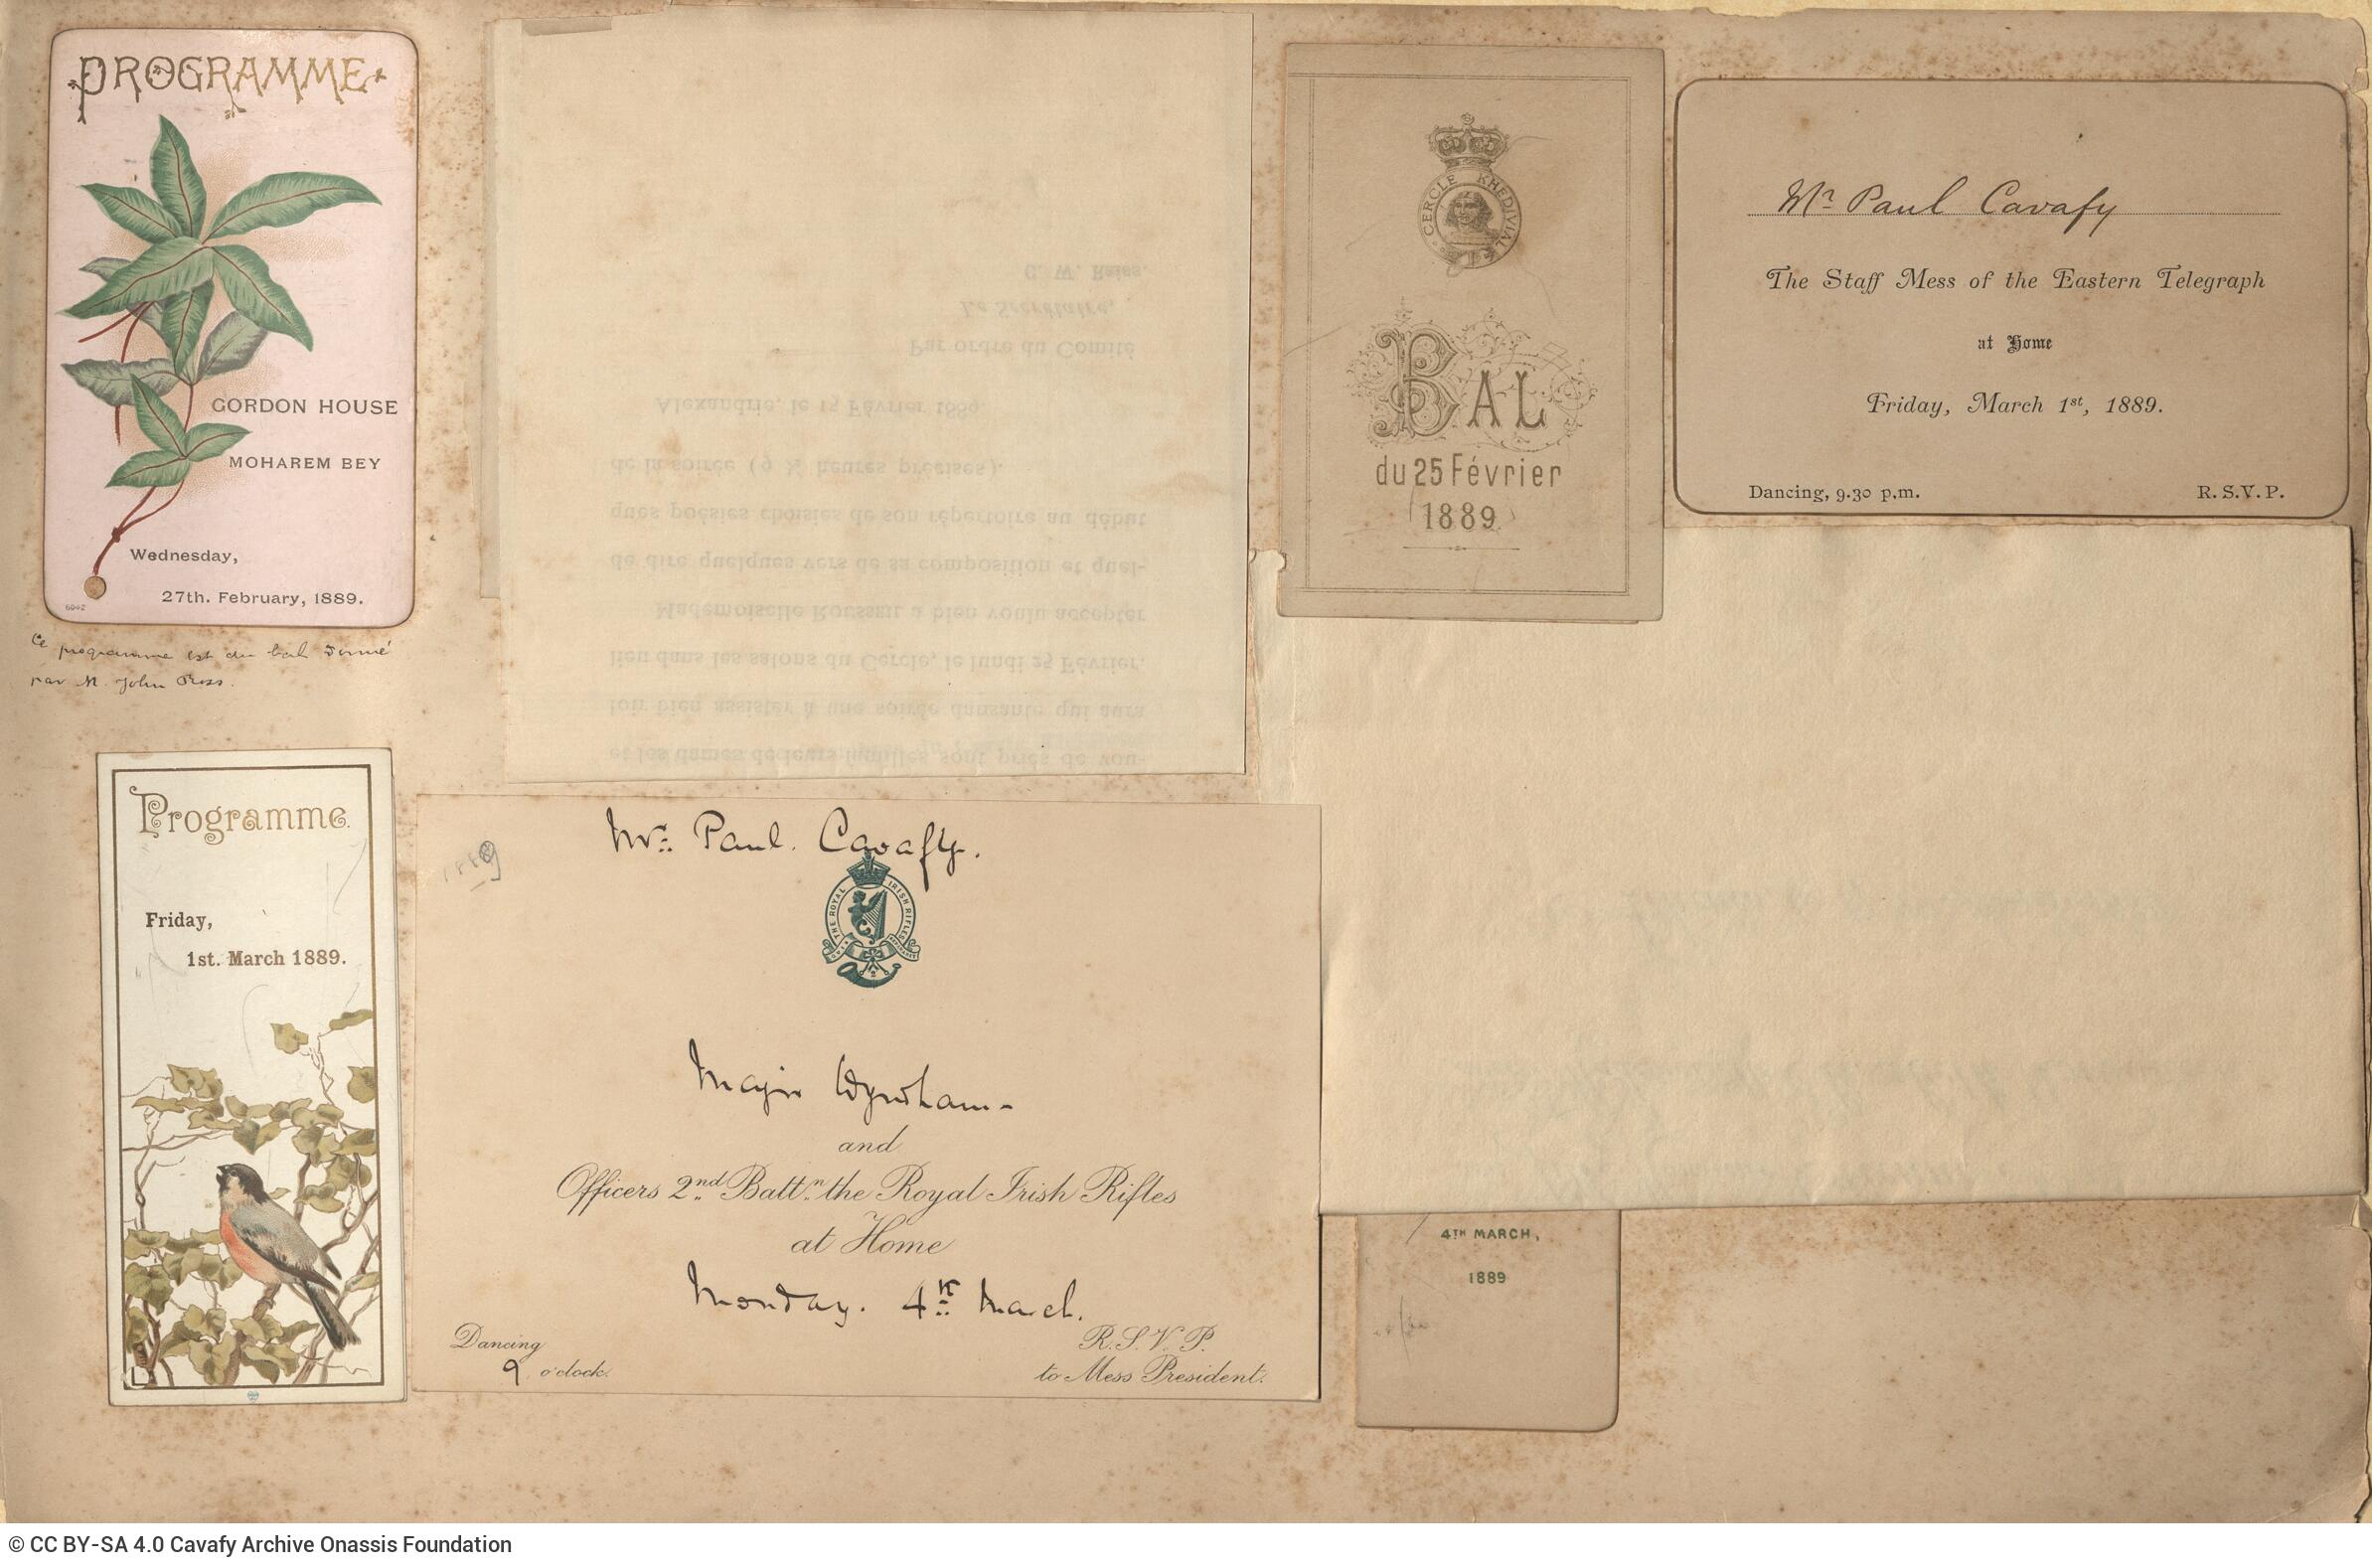 PROGRAMME
GORDON HOUSE
MOHAREM BEY
Wednesday,
27th. February, 1889.
Ce programme est du bal donné
par M. John Ross.
Programme.
Friday,
1st. March 1889.
et les dames de leurs familles sont priés de vou-
loir bien assister à une soirée dansante qui aura
lieu dans les salons du Cercle, le lundi 25 Février.
Mademoiselle ROUSSEIL a bien voulu accepter
de dire quelques vers de sa composition et quel-
ques poésies choisies de son répertoire au début
de la soirée (9 ½ heures précises).
Alexandrie, le 15 Février 1889.
Par ordre du Comité
Le Secrétaire,
1889
Mr. Paul. Cavafy.
THE ROYAL IRISH RIFLES
Major Wyndham-
and
Officers 2nd Battn. the Royal Irish Rifles
at Home
Monday. 4th March.
Dancing
9 o'clock.
R.S.V.P.
to Mess President.
CERCLE KHEDIVIAL
BAL
du 25 Février
1889
Mr Paul Cavafy
The Staff Mess of the Eastern Telegraph
at Home
Friday, March 1st, 1889.
Dancing, 9.30 p.m.
R.S.V.P.
4TH MARCH,
1889
© CC BY-SA 4.0 Cavafy Archive Onassis Foundation